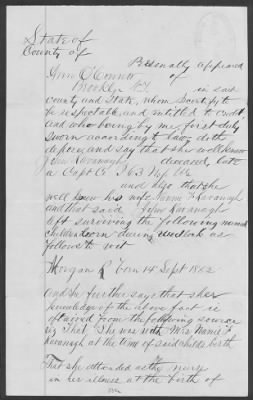 State of
County of
Personally appeared
Ann O'Connor of
Brooklyn N.Y. in said
county and State, whom I certify to
be respectable and entitled to credit
and who being by me first duly
sworn according to law doth
depose and say that she well knew
John Kavanagh deceased, late
a Capt Co I 63 N.Y. Vols
and also that she
well knew his wife Nannie Kavanagh
and that said John Kavanagh
left surviving the following named
children born during wedlock as
follows to wit
Morgan L born 14 Sept 1862
And she further says that her
knowledge of the above fact is
obtained from the following source
viz That She was with Mrs Nannie
Kavanagh at the time of said childs birth
That she attended as the nurse
in her illness at the birth of